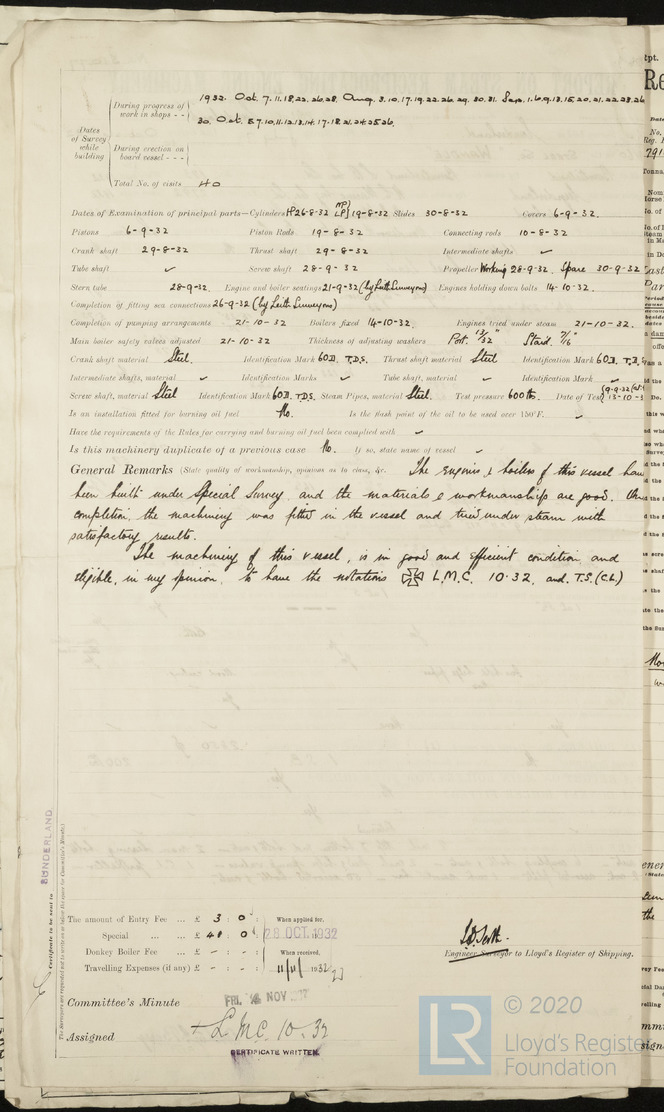 During progress of work in shops - - 1932. Oct. 7.11.18.22.26.28. Aug. 3.10.17.19.22.26.29.30.31. Sep. 1.6.9.13.15.20.21.22.23.26
30. Oct. 5.7.10.11.12.13.14.17.18.21.24.25.26.
Dates of Survey while building
During erection on board vessel - - -
Total No. of visits 40
Dates of Examination of principal parts—Cylinders HP 26-8-32 MP LP 19-8-32 Slides 30-8-32 Covers 6-9-32.
Pistons 6-9-32 Piston Rods 19-8-32 Connecting rods 10-8-32
Crank shaft 29-8-32 Thrust shaft 29-8-32 Intermediate shafts ✓
Tube shaft ✓ Screw shaft 28-9-32 Propeller Working 28-9-32. Spare 30-9-32
Stern tube 28-9-32. Engine and boiler seatings 21-9-32 (by Leith Surveyors) Engines holding down bolts 14-10-32.
Completion of fitting sea connections 26-9-32 (by Leith Surveyors)
Completion of pumping arrangements 21-10-32 Boilers fixed 14-10-32. Engines tried under steam 21-10-32.
Main boiler safety valves adjusted 21-10-32 Thickness of adjusting washers Port. 13/32" Starbd. 7/16"
Crank shaft material Steel. Identification Mark 60D. T.D.S. Thrust shaft material Steel Identification Mark 60D. T.D.S.
Intermediate shafts, material ✓ Identification Marks ✓ Tube shaft, material ✓ Identification Mark ✓
Screw shaft, material Steel Identification Mark 60D. T.D.S. Steam Pipes, material Steel. Test pressure 600 lb. Date of Test
Is an installation fitted for burning oil fuel No. Is the flash point of the oil to be used over 150°F. ✓
Have the requirements of the Rules for carrying and burning oil fuel been complied with ✓
Is this machinery duplicate of a previous case No. If so, state name of vessel ✓
General Remarks (State quality of workmanship, opinions as to class, &c. The Engines & boilers of this vessel have
been built under Special Survey and the materials & workmanship are good. On
completion, the machinery was fitted in the vessel and tried under steam with
satisfactory results.
The machinery of this vessel, is in good and efficient condition and
eligible, in my opinion, to have the notations ✠ L.M.C. 10.32. and T.S. (C.L.)
SUNDERLAND
Certificate to be sent to
The Surveyors are requested not to write on or below the space for Committee's Minute.
The amount of Entry Fee ... £ 3 : 0 : When applied for.
Special ... ... £ 48 : 0 : 28 OCT. 1932
Donkey Boiler Fee ... £ - : - : When received.
Travelling Expenses (if any) £ - : - : 11/11/1932
Engineer Surveyor to Lloyd's Register of Shipping.
Committee's Minute FRI. NOV
Assigned + L.M.C. 10.32
CERTIFICATE WRITTEN.
LR © 2020
Lloyd's Register
Foundation